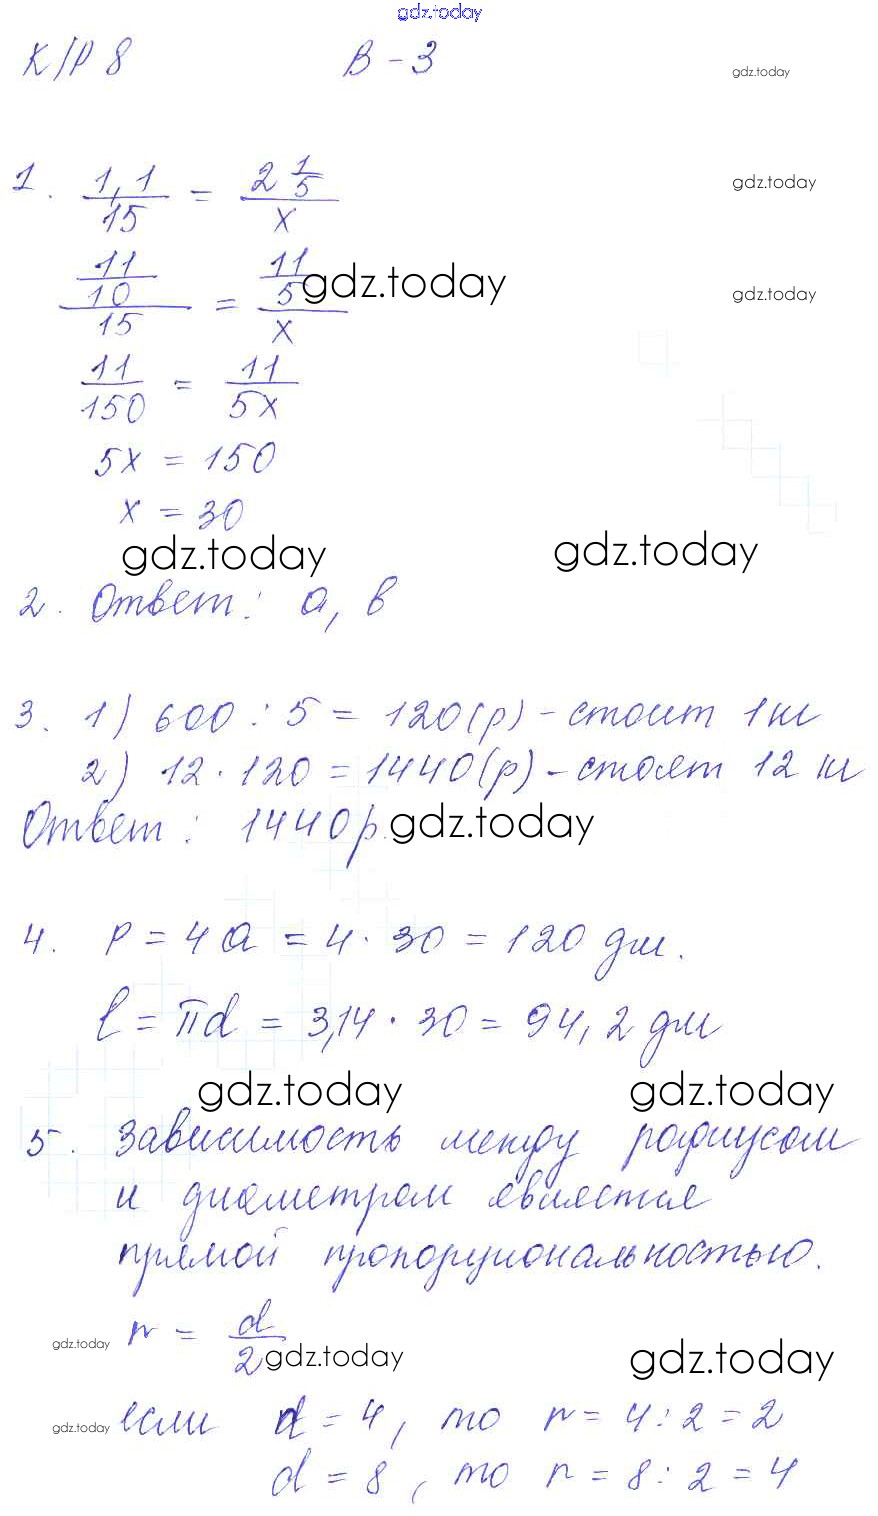 gdz.today
К/Р 8 В-3
gdz.today
1. 1,1/15 = 2 1/5/x
gdz.today
11/10/15 = 11/5/x
gdz.today
gdz.today
11/150 = 11/5x
5x = 150
x = 30
gdz.today gdz.today
2. Ответ: а, в
3. 1) 600 : 5 = 120(р) - стоит 1 кг
2) 12 · 120 = 1440(р) - стоят 12 кг
Ответ: 1440 р.
gdz.today
4. P = 4a = 4 · 30 = 120 дм.
l = πd = 3,14 · 30 = 94,2 дм
gdz.today gdz.today
5. Зависимость между радиусом
и диаметром является
прямой пропорциональностью.
gdz.today r = d/2 gdz.today gdz.today
gdz.today если d = 4, то r = 4 : 2 = 2
d = 8, то r = 8 : 2 = 4